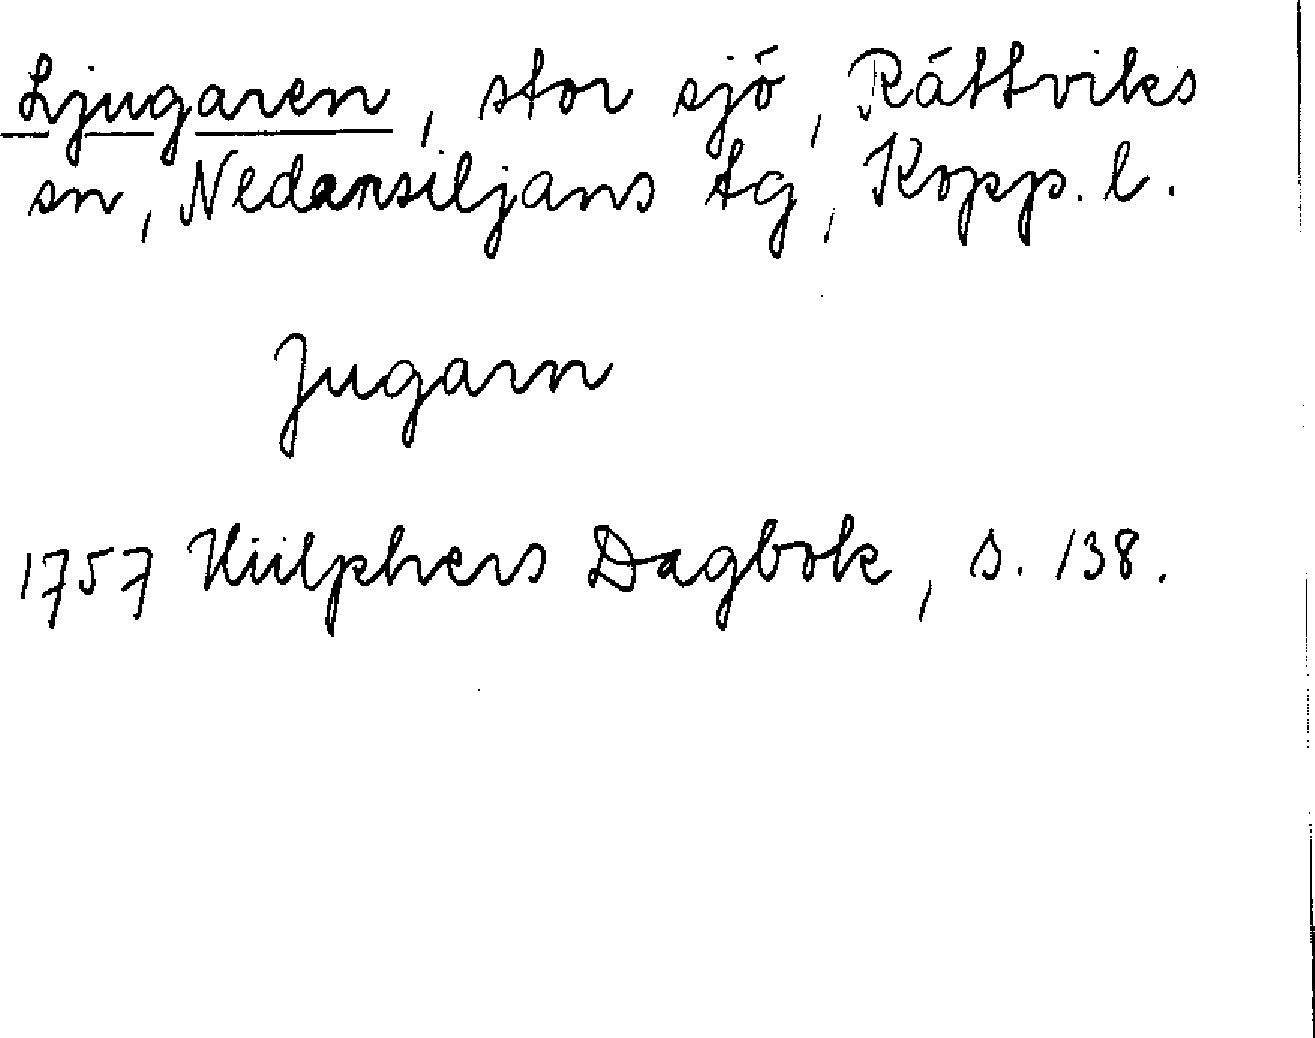 Ljugaren, stor sjö, Rättviks
sn, Nedansiljans tg, Kopp. l.
Jugarn
1757 Hülphers Dagbok, s. 138.